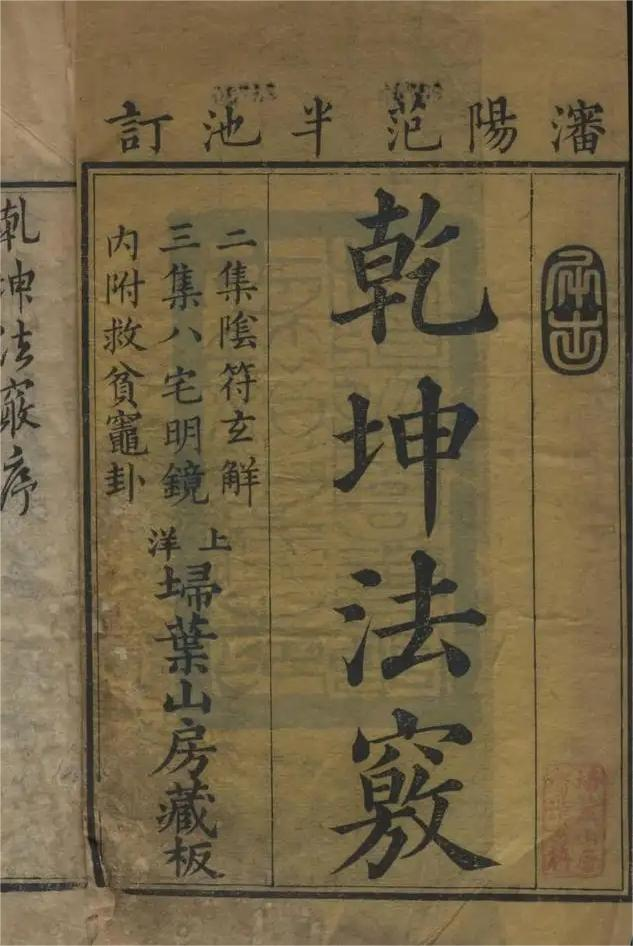 瀋陽范半池訂
乾坤法竅
二集陰符玄觧
三集八宅明鏡
内附救貧竈卦
上洋
埽葉山房藏板
乹坤法竅序